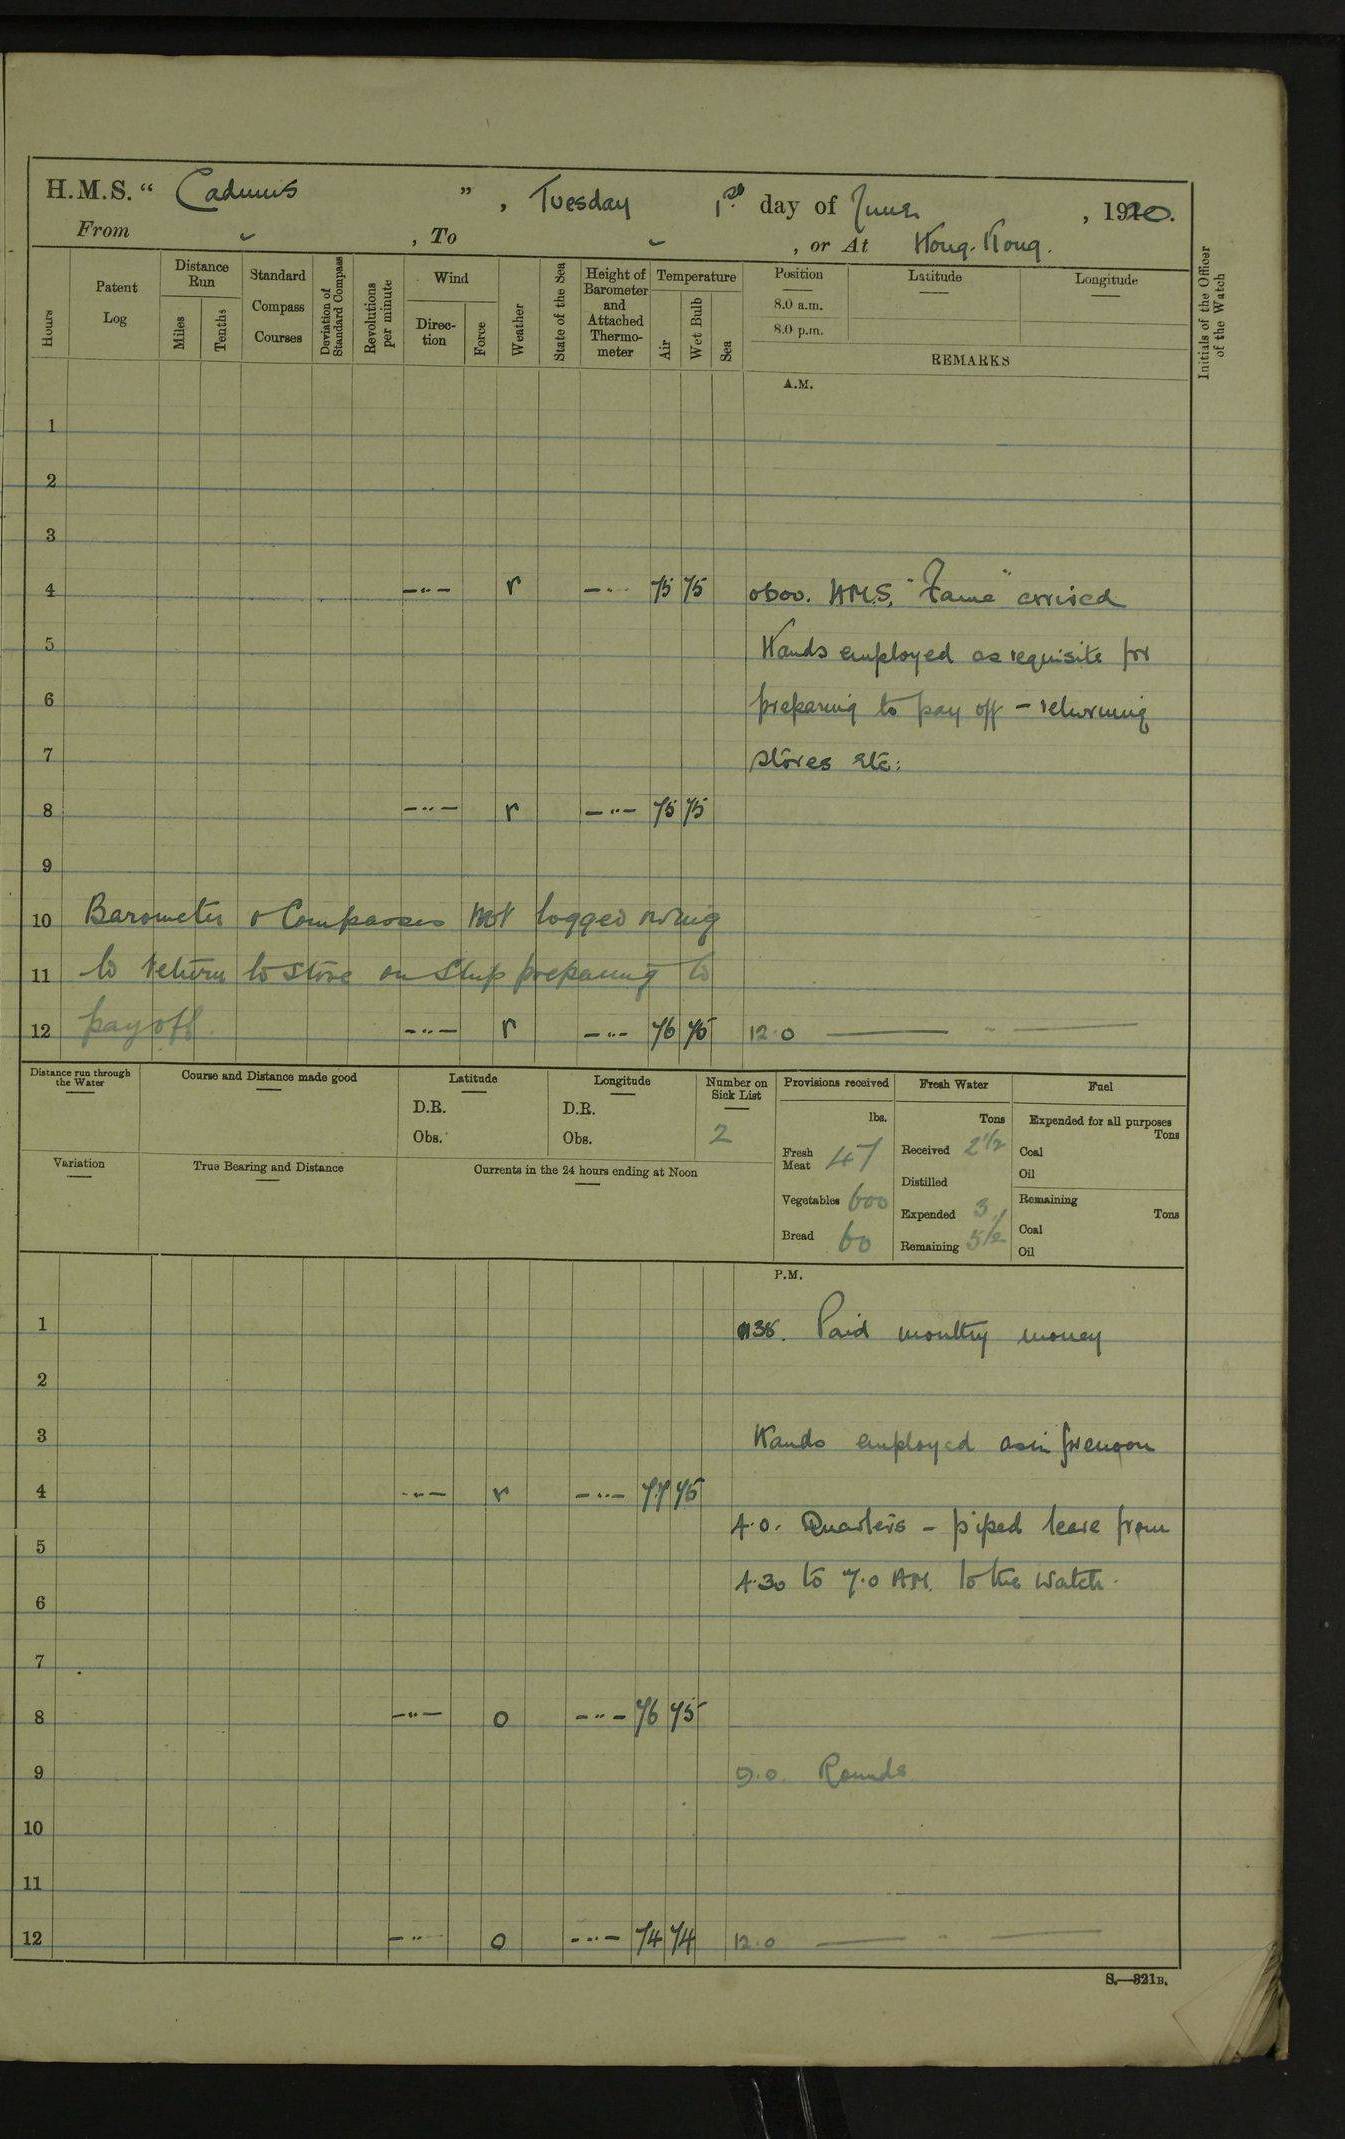 H.M.S. “ Cadmus ” , Tuesday 1st day of June , 1920.
From ˘ , To ˘ , or At Hong-Kong.
Hours
Patent Log
Distance Run
Miles
Tenths
Standard Compass Courses
Deviation of Standard Compass
Revolutions per minute
Wind
Direction
Force
Weather
State of the Sea
Height of Barometer and Attached Thermometer
Temperature
Air
Wet Bulb
Sea
Position
8.0 a.m.
8.0 p.m.
Latitude
Longitude
REMARKS
Initials of the Officer of the Watch
A.M.
1
2
3
4 —··— r —··— 75 75 0600. H.M.S. "Fame" arrived
5 Hands employed as requisite for
6 preparing to pay off – returning
7 stores etc:
8 —··— r —··— 75 75
9
10 Barometer & Compasses not logged owing
11 to return to store on ship preparing to
12 pay off. —··— r —··— 76 75 12.0 — " —
Distance run through the Water
Course and Distance made good
Latitude
D.R.
Obs.
Longitude
D.R.
Obs.
Number on Sick List
2
Provisions received
lbs.
Fresh Meat 47
Vegetables 600
Bread 60
Fresh Water
Tons
Received 2 1/2
Distilled
Expended 3
Remaining 5 1/2
Fuel
Expended for all purposes
Tons
Coal
Oil
Remaining
Tons
Coal
Oil
Variation
True Bearing and Distance
Currents in the 24 hours ending at Noon
P.M.
1 Paid monthly money
2
3 Hands employed as in forenoon
4 —··— r —··— 77 75
4.0. Quarters – piped leave from
5
4.30 to 7.0 AM. to the watch.
6
7
8 —··— o —··— 76 75
9 9.0 Rounds
10
11
12 —··— o —··— 74 74 12.0 — " —
S.—321B.